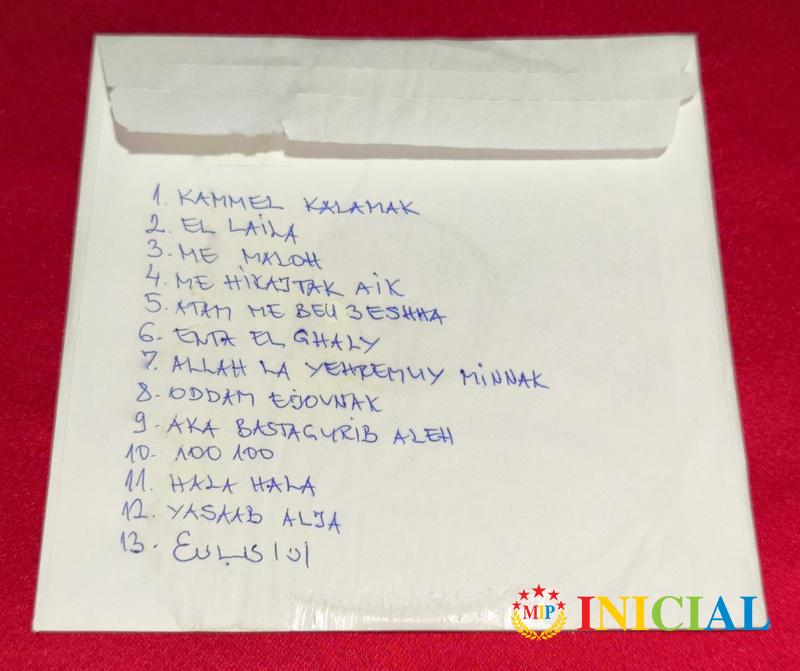 1. KAMMEL KALAMAK
2. EL LAILA
3. ME MALOH
4. ME HIKAJTAK AIK
5. ATAM ME BEU3ESHHA
6- ENTA EL GHALY
7. ALLAH LA YEHREMUY MINNAK
8- ODDAM EJOUNAK
9- AKA BASTAGURIB ALEH
10- 100 100
11. HALA HALA
12. YASAAB ALJA
13- انا
MIP INICIAL